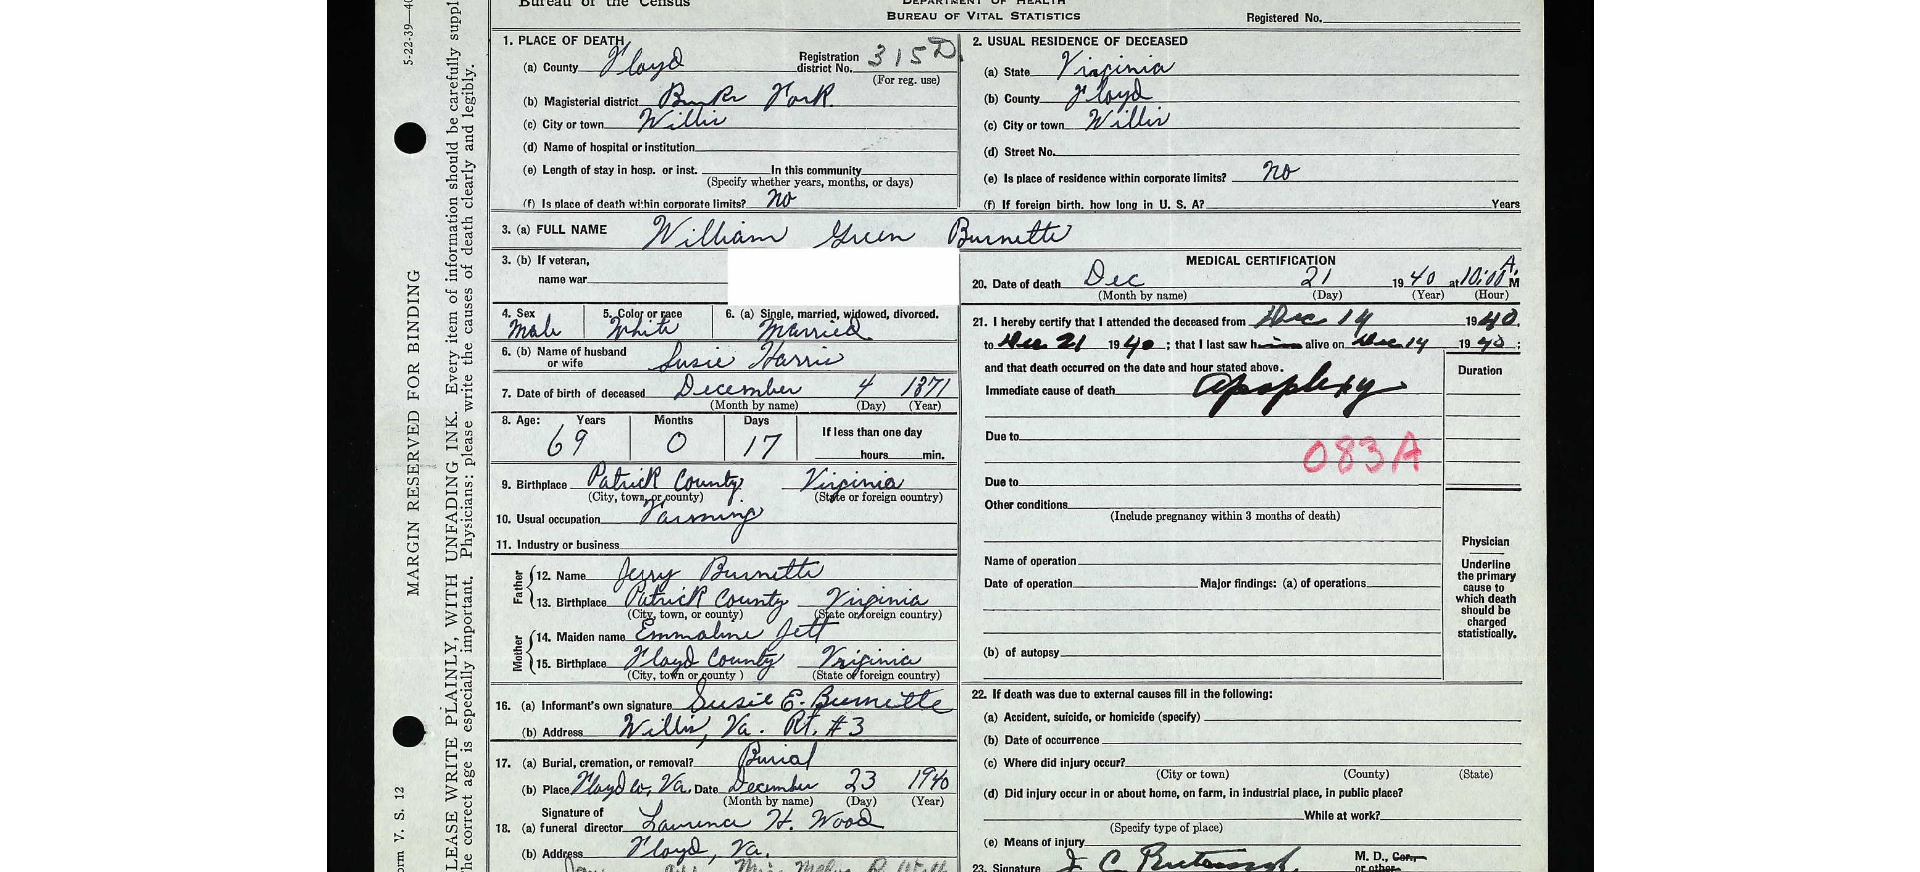 Bureau of the Census
DEPARTMENT OF HEALTH
BUREAU OF VITAL STATISTICS
Registered No.
5-22-39—40
MARGIN RESERVED FOR BINDING
LEASE WRITE PLAINLY, WITH UNFADING INK. Every item of information should be carefully suppl
he correct age is especially important. Physicians: please write the causes of death clearly and legibly.
orm V. S. 12
1. PLACE OF DEATH
(a) County Floyd Registration district No. 315D
(For reg. use)
(b) Magisterial district Burks Fork
(c) City or town Willis
(d) Name of hospital or institution
(e) Length of stay in hosp. or inst. In this community
(Specify whether years, months, or days)
(f) Is place of death within corporate limits? no
2. USUAL RESIDENCE OF DECEASED
(a) State Virginia
(b) County Floyd
(c) City or town Willis
(d) Street No.
(e) Is place of residence within corporate limits? no
(f) If foreign birth, how long in U. S. A? Years
3. (a) FULL NAME William Green Burnette
3. (b) If veteran,
name war
4. Sex 5. Color or race 6. (a) Single, married, widowed, divorced.
Male White Married
6. (b) Name of husband or wife Susie Harris
7. Date of birth of deceased December 4 1871
(Month by name) (Day) (Year)
8. Age: Years Months Days If less than one day
69 0 17 hours min.
9. Birthplace Patrick County Virginia
(City, town, or county) (State or foreign country)
10. Usual occupation Farming
11. Industry or business
Father
12. Name Jerry Burnette
13. Birthplace Patrick County Virginia
(City, town, or county) (State or foreign country)
Mother
14. Maiden name Emmaline Jett
15. Birthplace Floyd County Virginia
(City, town or county) (State or foreign country)
16. (a) Informant's own signature Susie E. Burnette
(b) Address Willis, Va. Rt. #3
17. (a) Burial, cremation, or removal? Burial
(b) Place Floyd Co, Va. Date December 23 1940
(Month by name) (Day) (Year)
Signature of
18. (a) funeral director Laurence H. Wood
(b) Address Floyd, Va.
MEDICAL CERTIFICATION
20. Date of death Dec 21 1940 at 10:00 A. M
(Month by name) (Day) (Year) (Hour)
21. I hereby certify that I attended the deceased from Dec 14 1940,
to Dec 21 1940; that I last saw him alive on Dec 14 1940;
and that death occurred on the date and hour stated above.
Duration
Immediate cause of death apoplexy
Due to
083A
Due to
Other conditions
(Include pregnancy within 3 months of death)
Name of operation
Date of operation Major findings: (a) of operations
(b) of autopsy
Physician
Underline
the primary
cause to
which death
should be
charged
statistically.
22. If death was due to external causes fill in the following:
(a) Accident, suicide, or homicide (specify)
(b) Date of occurrence
(c) Where did injury occur?
(City or town) (County) (State)
(d) Did injury occur in or about home, on farm, in industrial place, in public place?
While at work?
(Specify type of place)
(e) Means of injury
23. Signature J C M. D., Cor.
or other